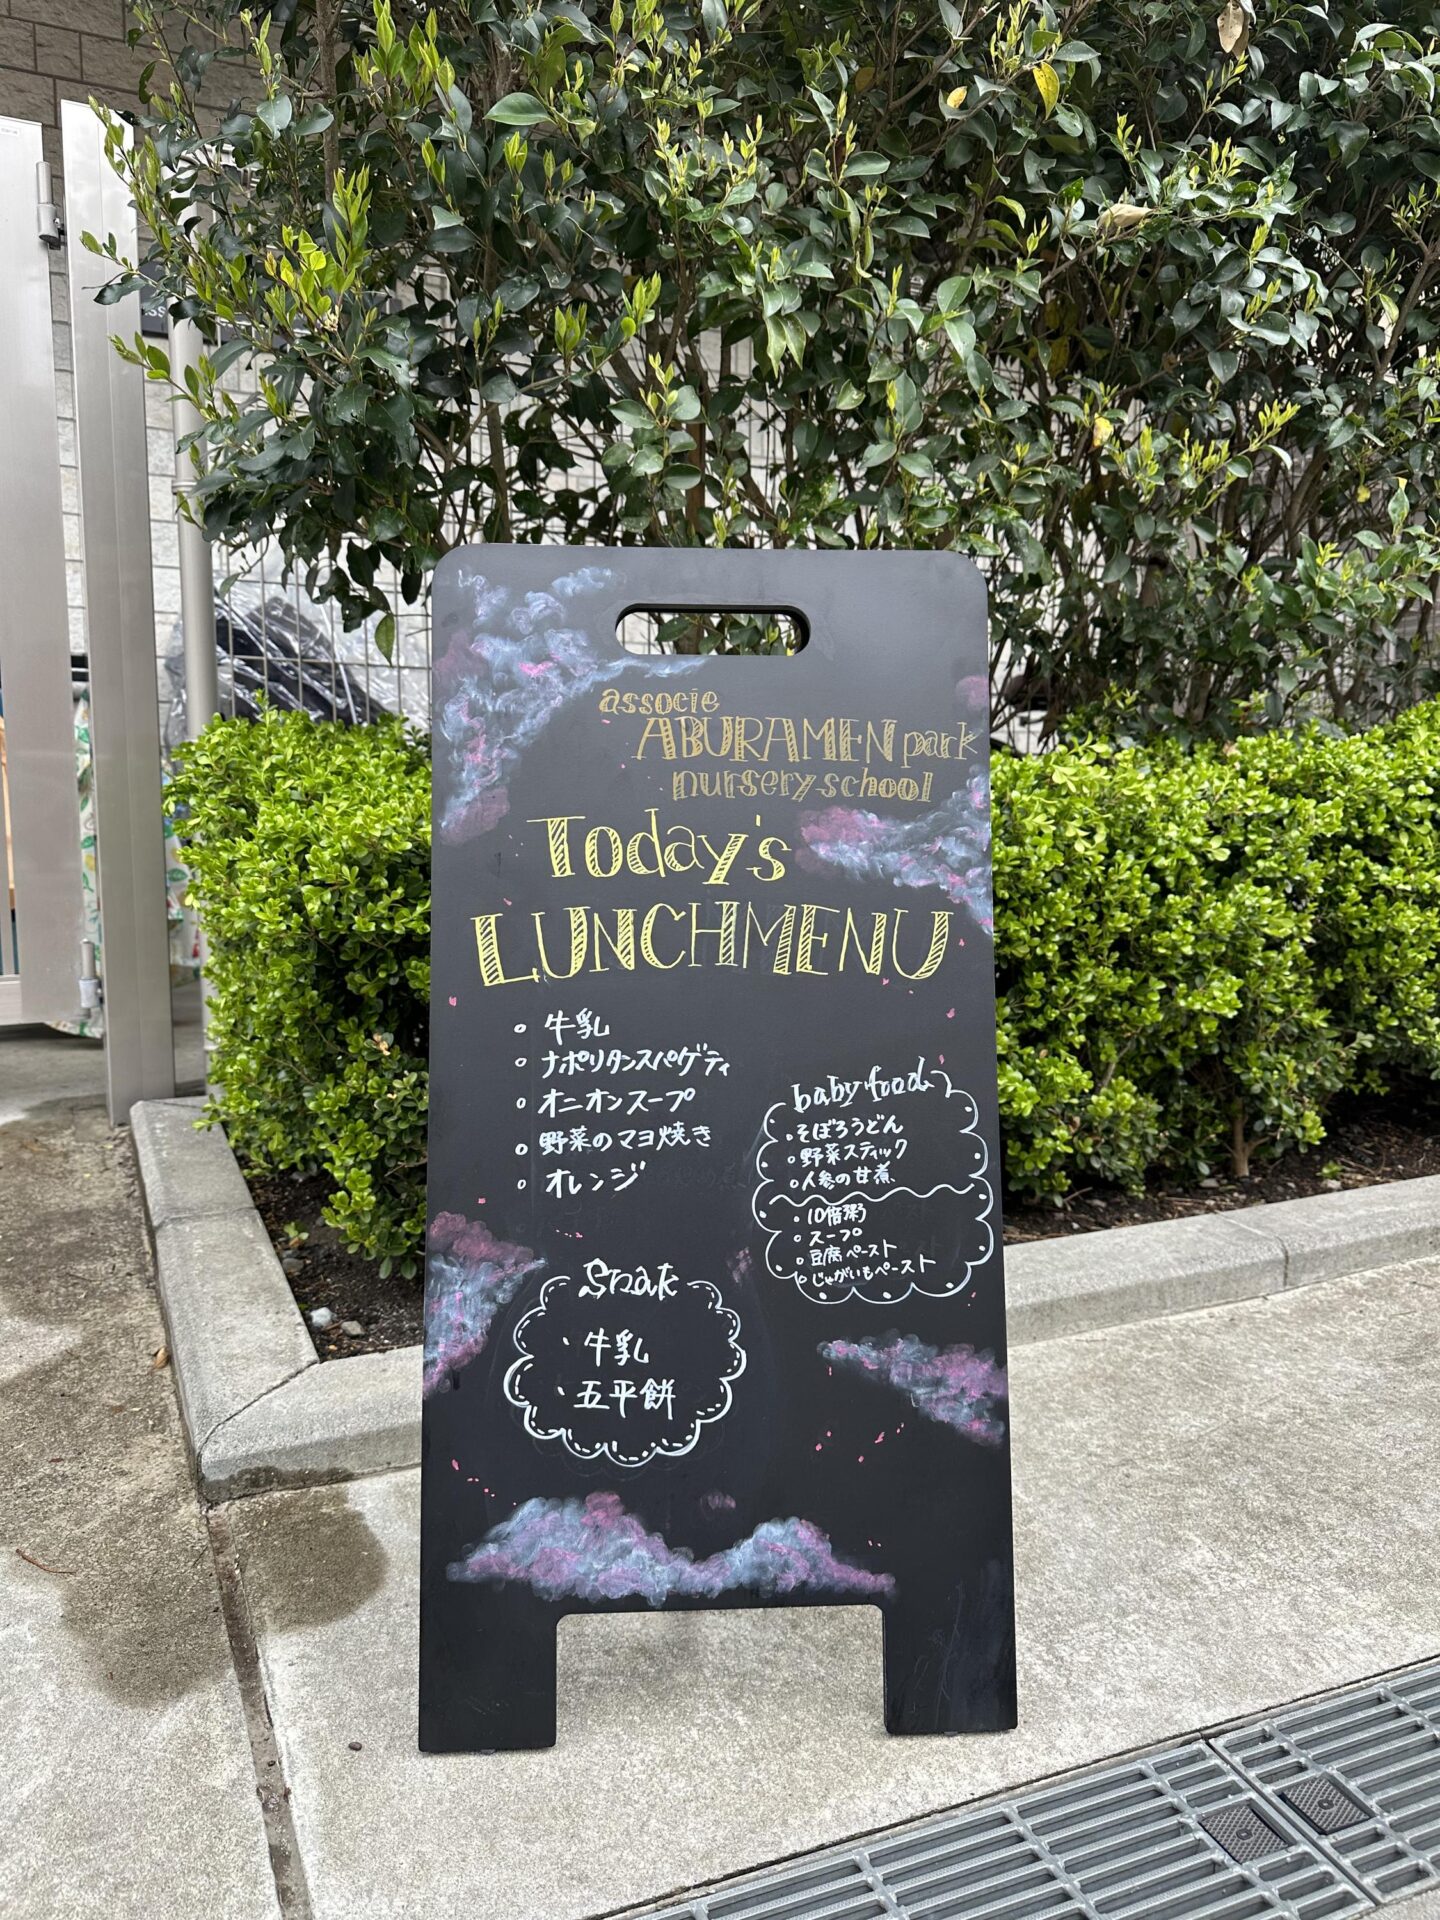 associe
ABURAMEN park
nursery school
Today's
LUNCHMENU
牛乳
ナポリタンスパゲティ
オニオンスープ
野菜のマヨ焼き
オレンジ
baby food
そぼろうどん
野菜スティック
人参の甘煮
10倍粥
スープ
豆腐ペースト
じゃがいもペースト
Snak
牛乳
五平餅